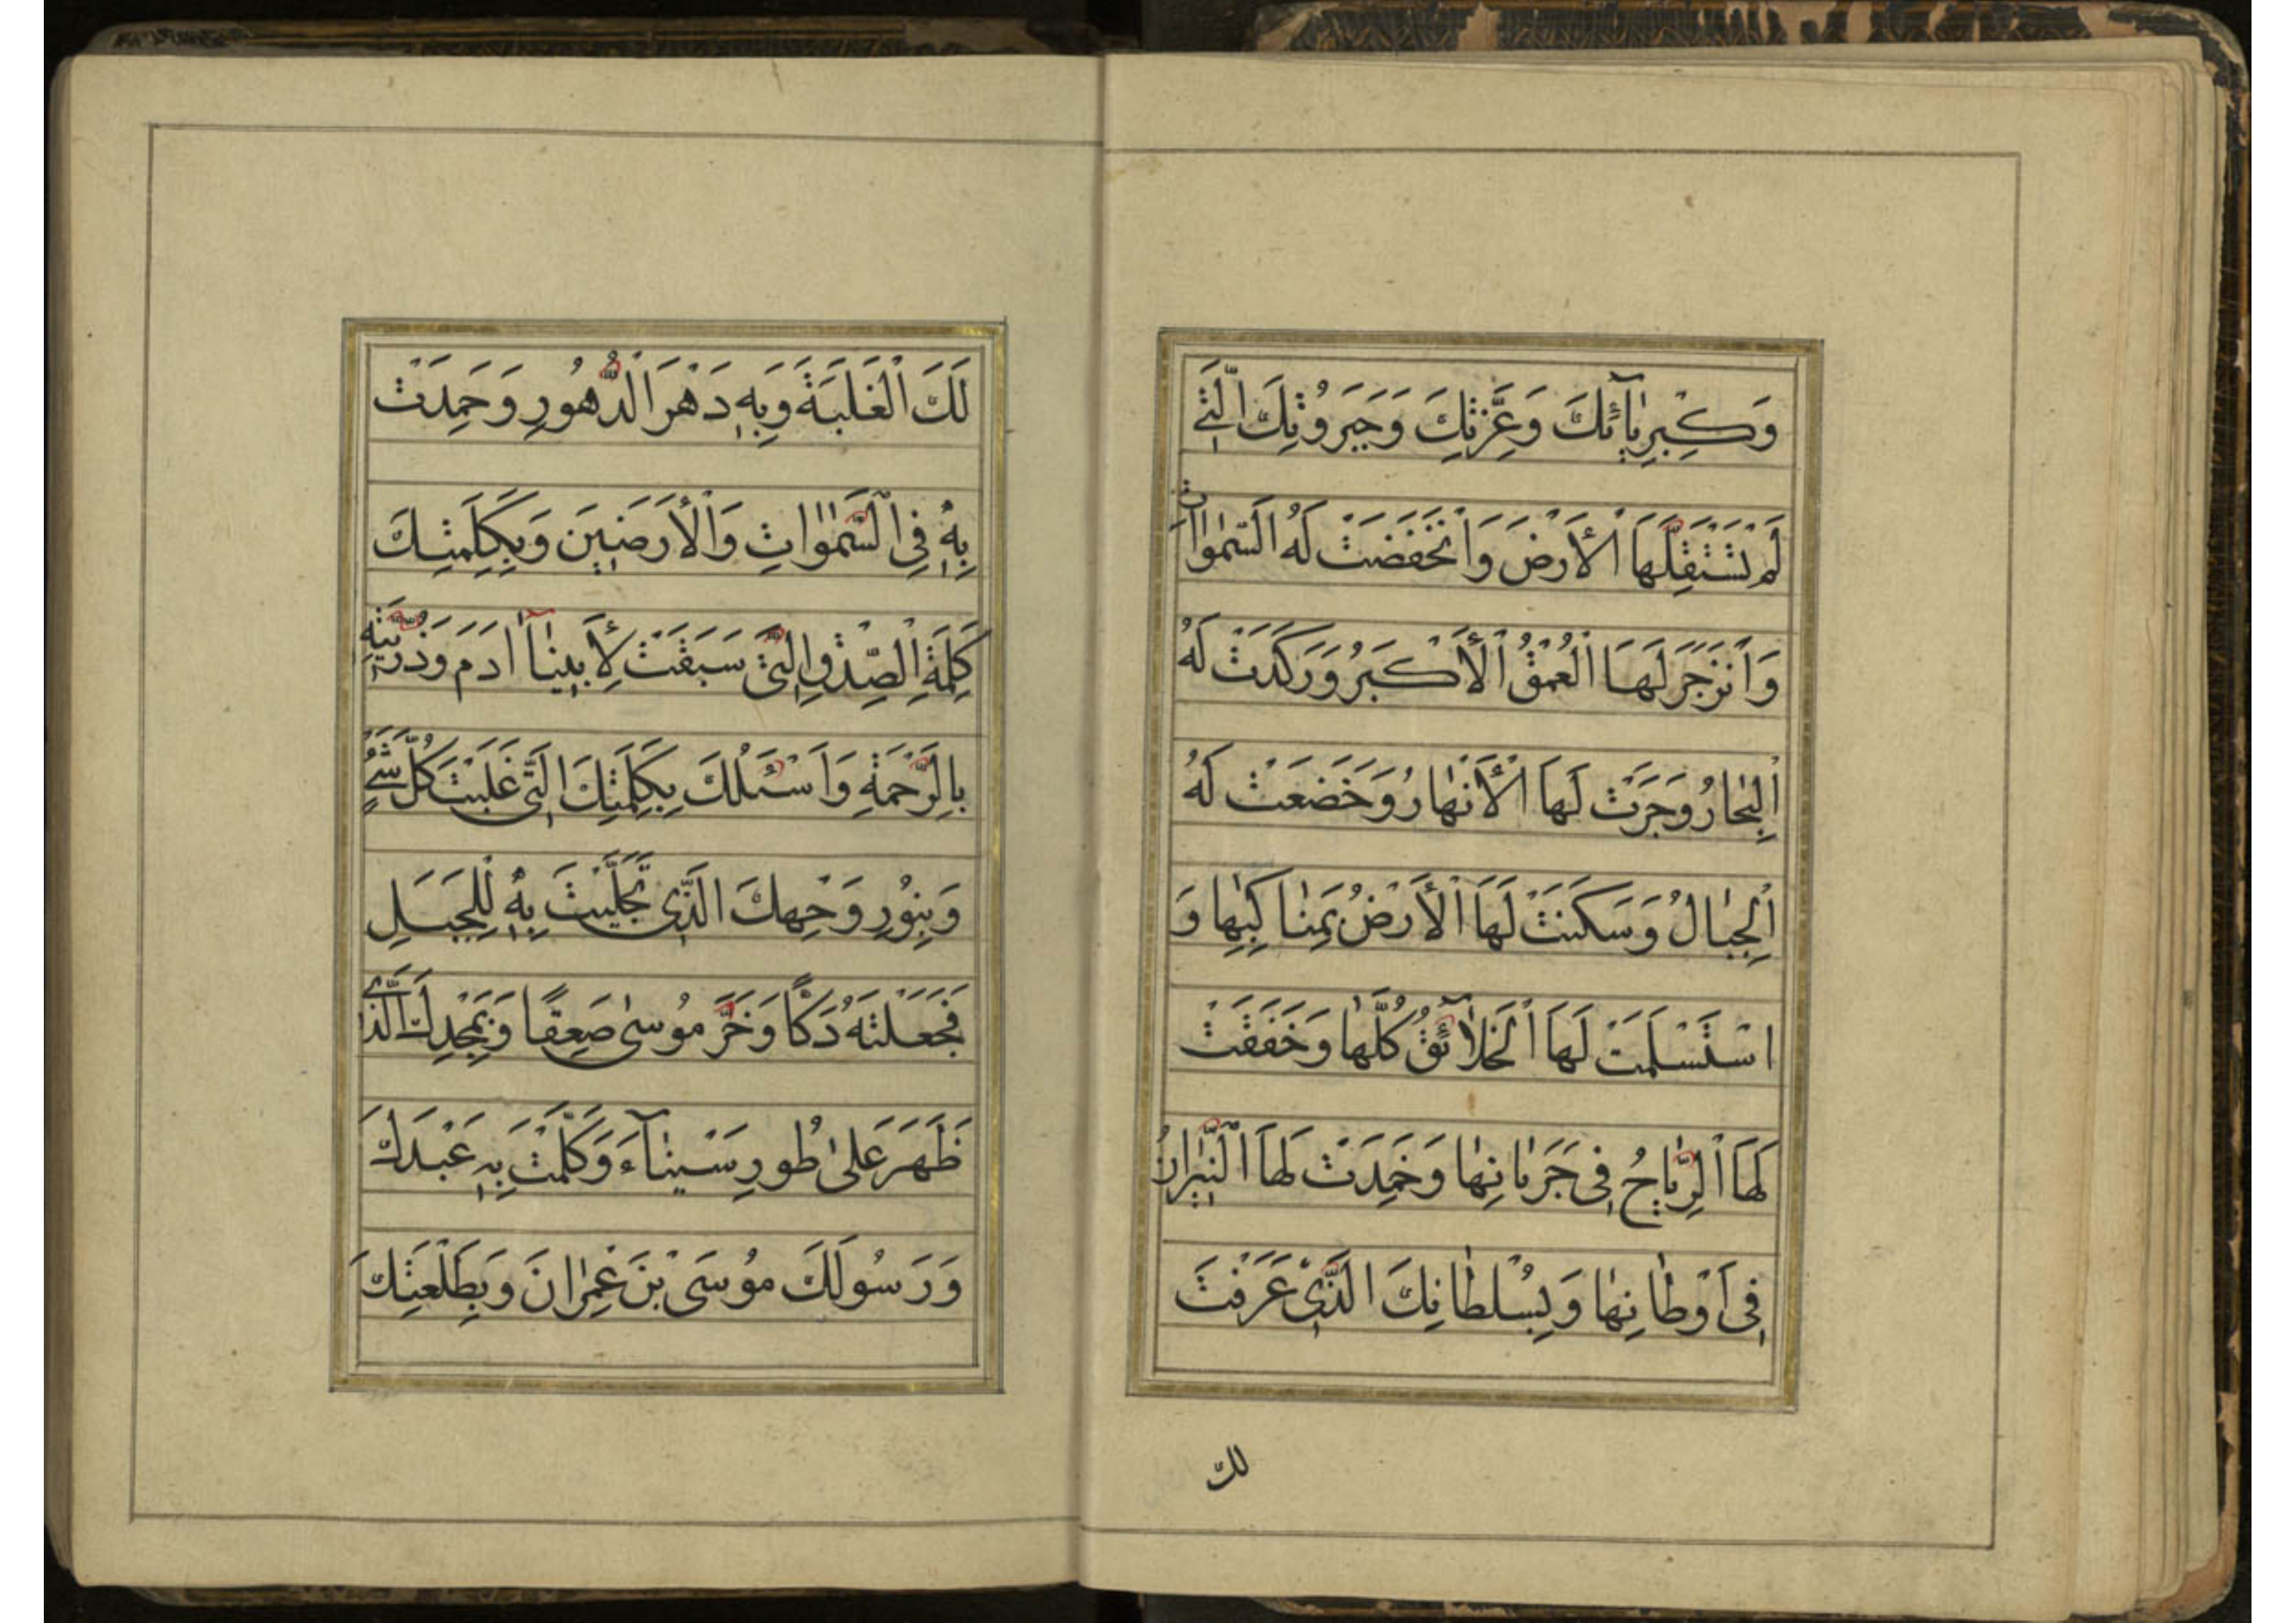 وَكِبْرِيٰآئِكَ وَعَِزَّتِكَ وَجَبَرُوتِكَ الَّتِي
لَمْ تَسْتَقِلَّهَا الْأَرْضُ وَانْخَفَضَتْ لَهُ السَّمٰوَاتُ
وَانْزَجَرَ لَهَا الْعُمْقُ الْأَكْبَرُ وَرَكَدَتْ لَهُ
الْبِحٰارُ وَجَرَتْ لَهَا الْأَنْهٰارُ وَخَضَعَتْ لَهُ
الْجِبٰالُ وَسَكَنَتْ لَهَا الْأَرْضُ بِمَنٰاكِبِهٰا وَ
اسْتَسْلَمَتْ لَهَا الْخَلٰآئِقُ كُلُّهٰا وَخَفَقَتْ
لَهَا الرِّيٰاحُ فِي جَرَيٰانِهٰا وَخَمِدَتْ لَهَا النِّيرٰانُ
فِي أَوْطٰانِهٰا وَبِسُلْطٰانِكَ الَّذِي عَرَفَتْ
لك
لَكَ الْغَلَبَةَ وَبِهِ دَهْرَ الدُّهُورِ وَحَمِدَتْ
بِهِ فِي السَّمٰوٰاتِ وَالْأَرَضِينَ وَبِكَلِمَتِكَ
كَلِمَةِ الصِّدْقِ الَّتِي سَبَقَتْ لِأَبِينٰا اٰدَمَ وَذُرِّيَّتِهِ
بِالرَّحْمَةِ وَاَسْئَلُكَ بِكَلِمَتِكَ الَّتِي غَلَبَتْ كُلَّ شَيْءٍ
وَبِنُورِ وَجْهِكَ الَّذِي تَجَلَّيْتَ بِهِ لِلْجَبَلِ
فَجَعَلْتَهُ دَكًّا وَخَرَّ مُوسىٰ صَعِقًا وَبِمَجْدِكَ الَّذِي
ظَهَرَ عَلىٰ طُورِ سَيْنٰآءَ وَكَلَّمْتَ بِهِ عَبْدَكَ
وَرَسُولَكَ مُوسَى بْنَ عِمْرٰانَ وَبِطَلْعَتِكَ